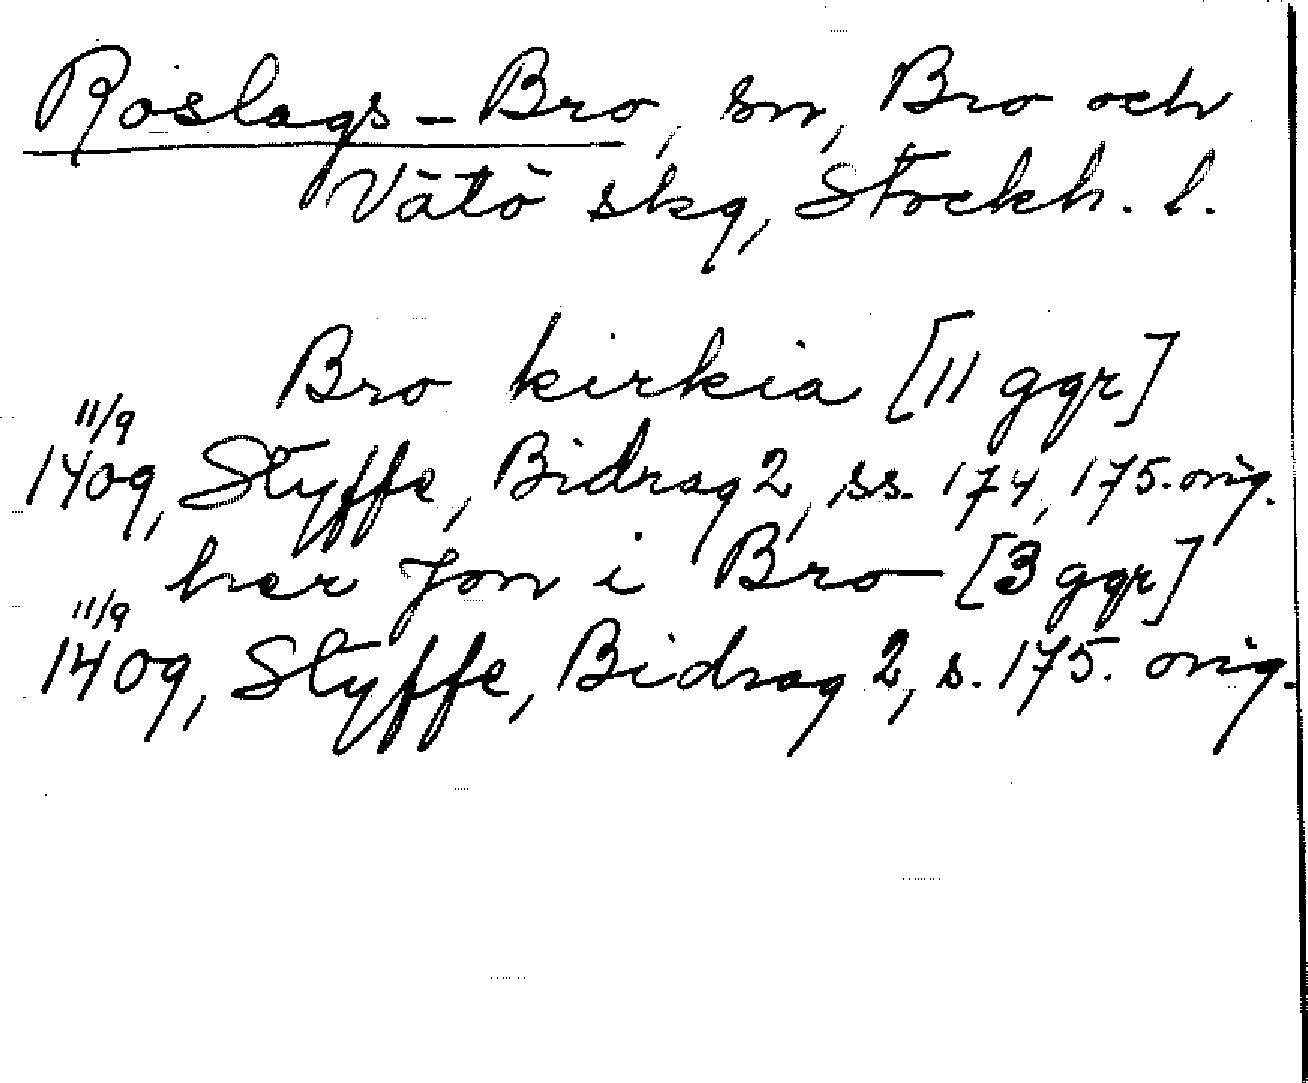 Roslags-Bro, sn, Bro och
Vätö skg, Stockh. l.
Bro kirkia [11 ggr]
11/9
1409, Styffe, Bidrag 2, ss. 174, 175. orig.
her Jon i Bro [3 ggr]
11/9
1409, Styffe, Bidrag 2, s. 175. orig.